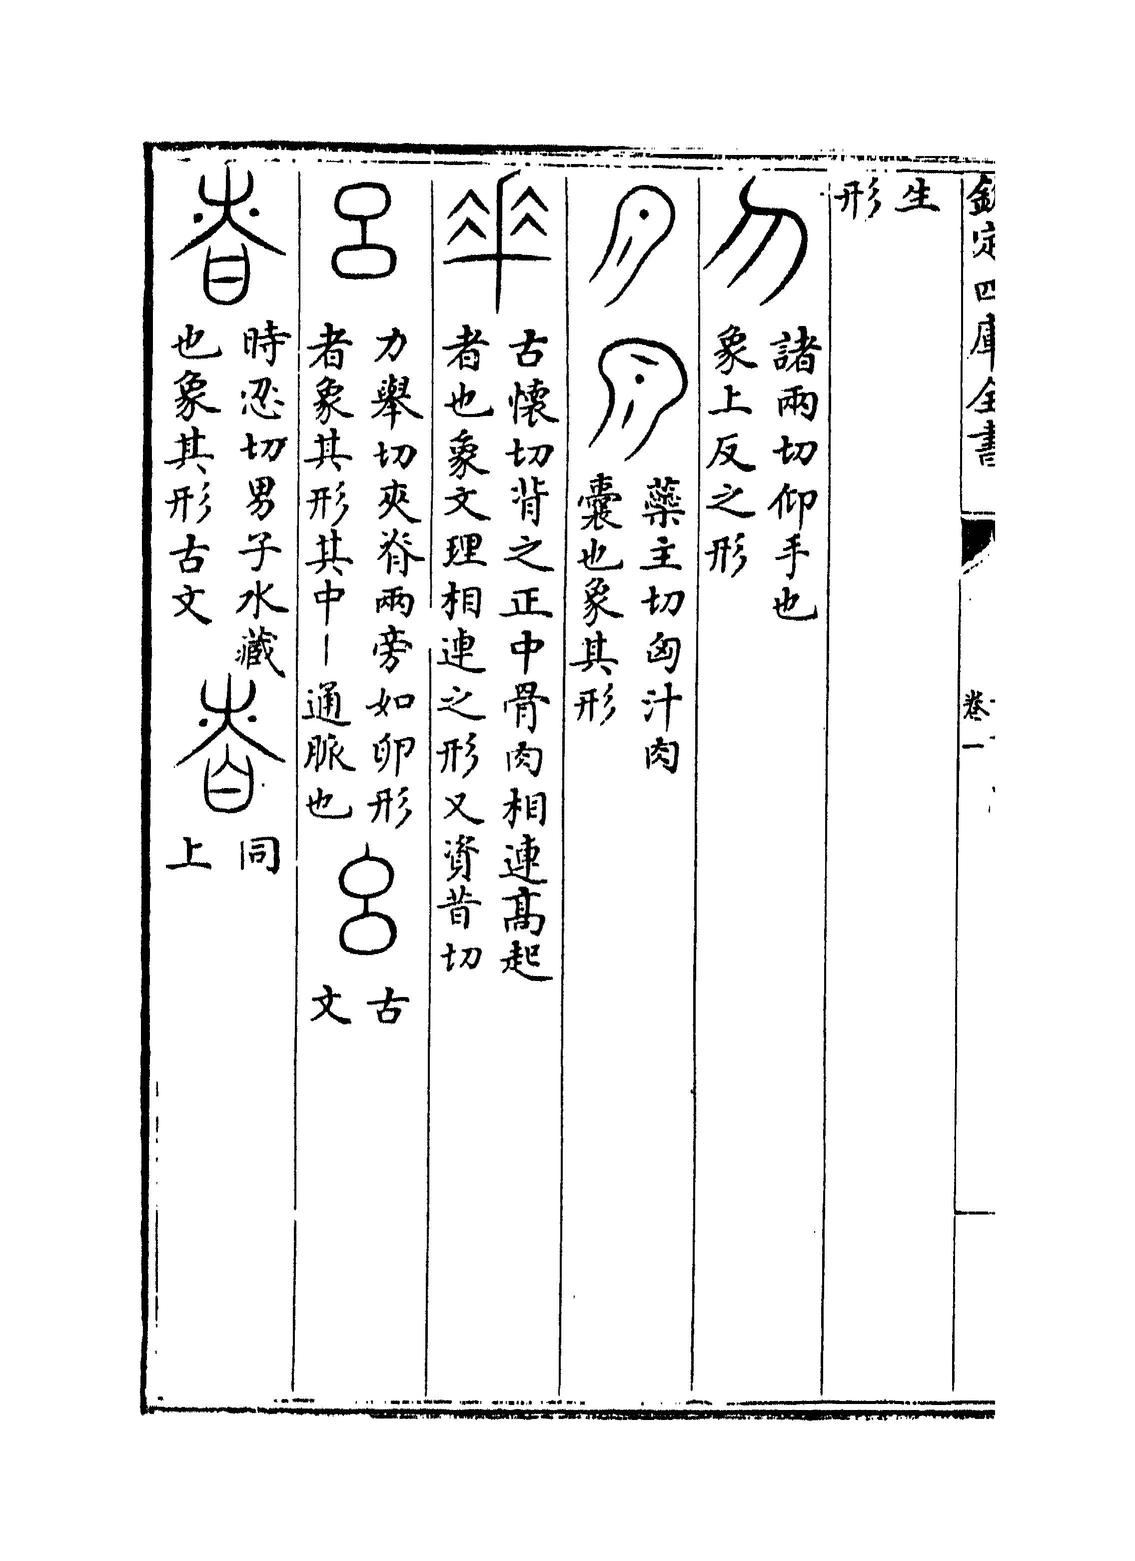 欽定四庫全書
卷一
生
形
諸兩切仰手也
象上反之形
藥主切匈汁肉
囊也象其形
古懷切背之正中骨肉相連高起
者也象文理相連之形又資昔切
呂
力舉切夾脊兩旁如卵形
者象其形其中丨通脈也
呂
古
文
時忍切男子水藏
也象其形古文
同
上